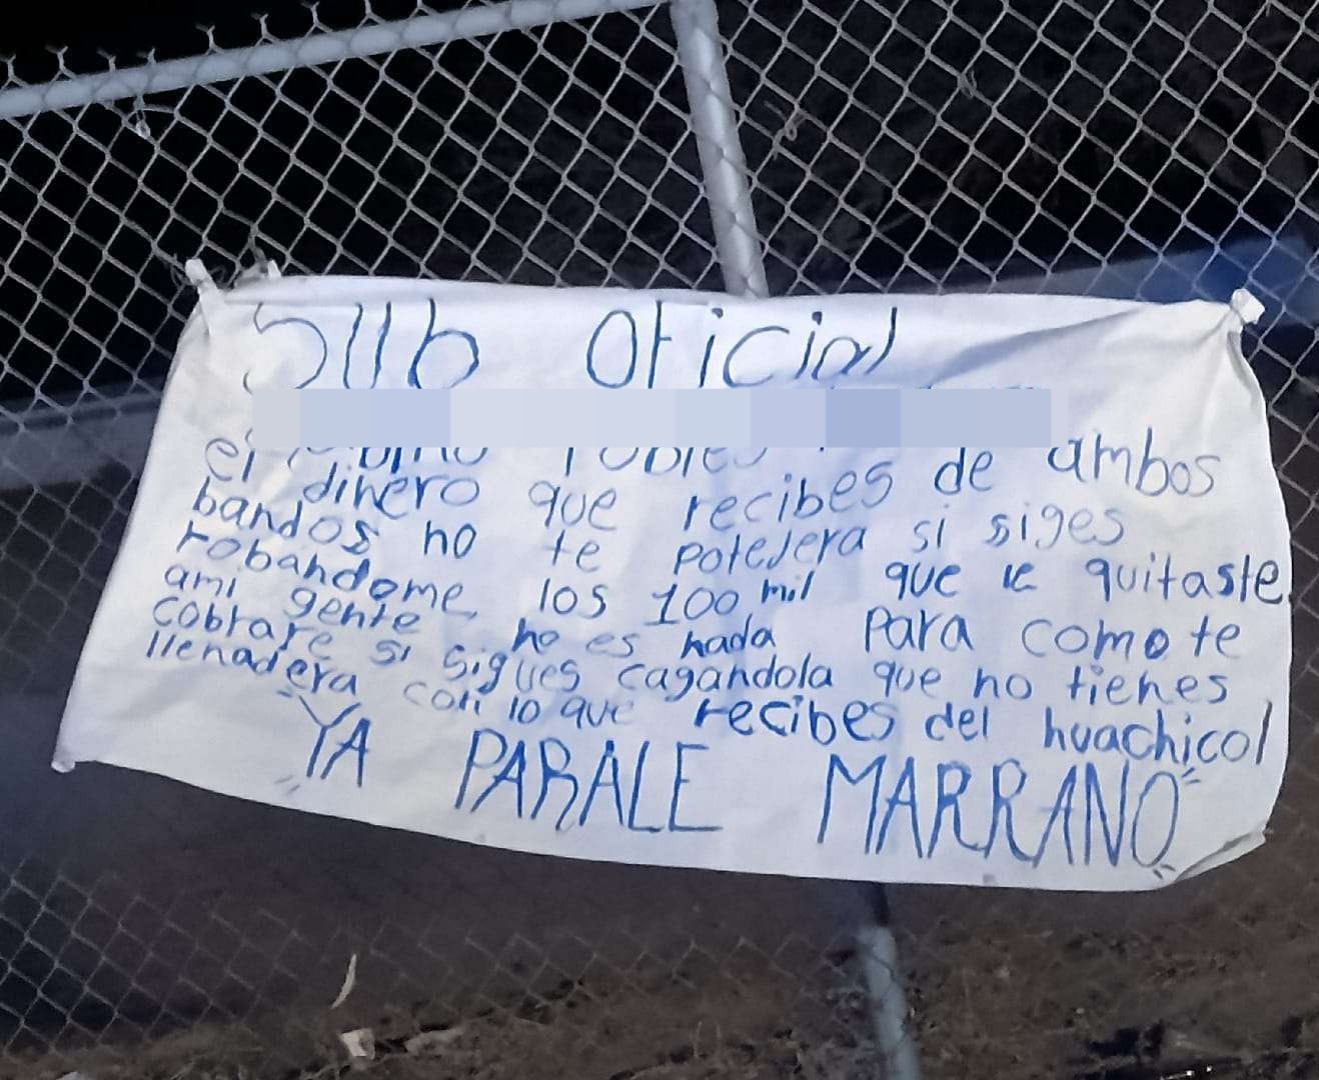 Sub Oficial
el dinero que recibes de ambos
bandos no te potejera si siges
robandome los 100 mil que le quitaste
ami gente no es nada para como te
cobrare si sigues cagandola que no tienes
llenadera con lo que recibes del huachicol
"YA PARALE MARRANO"